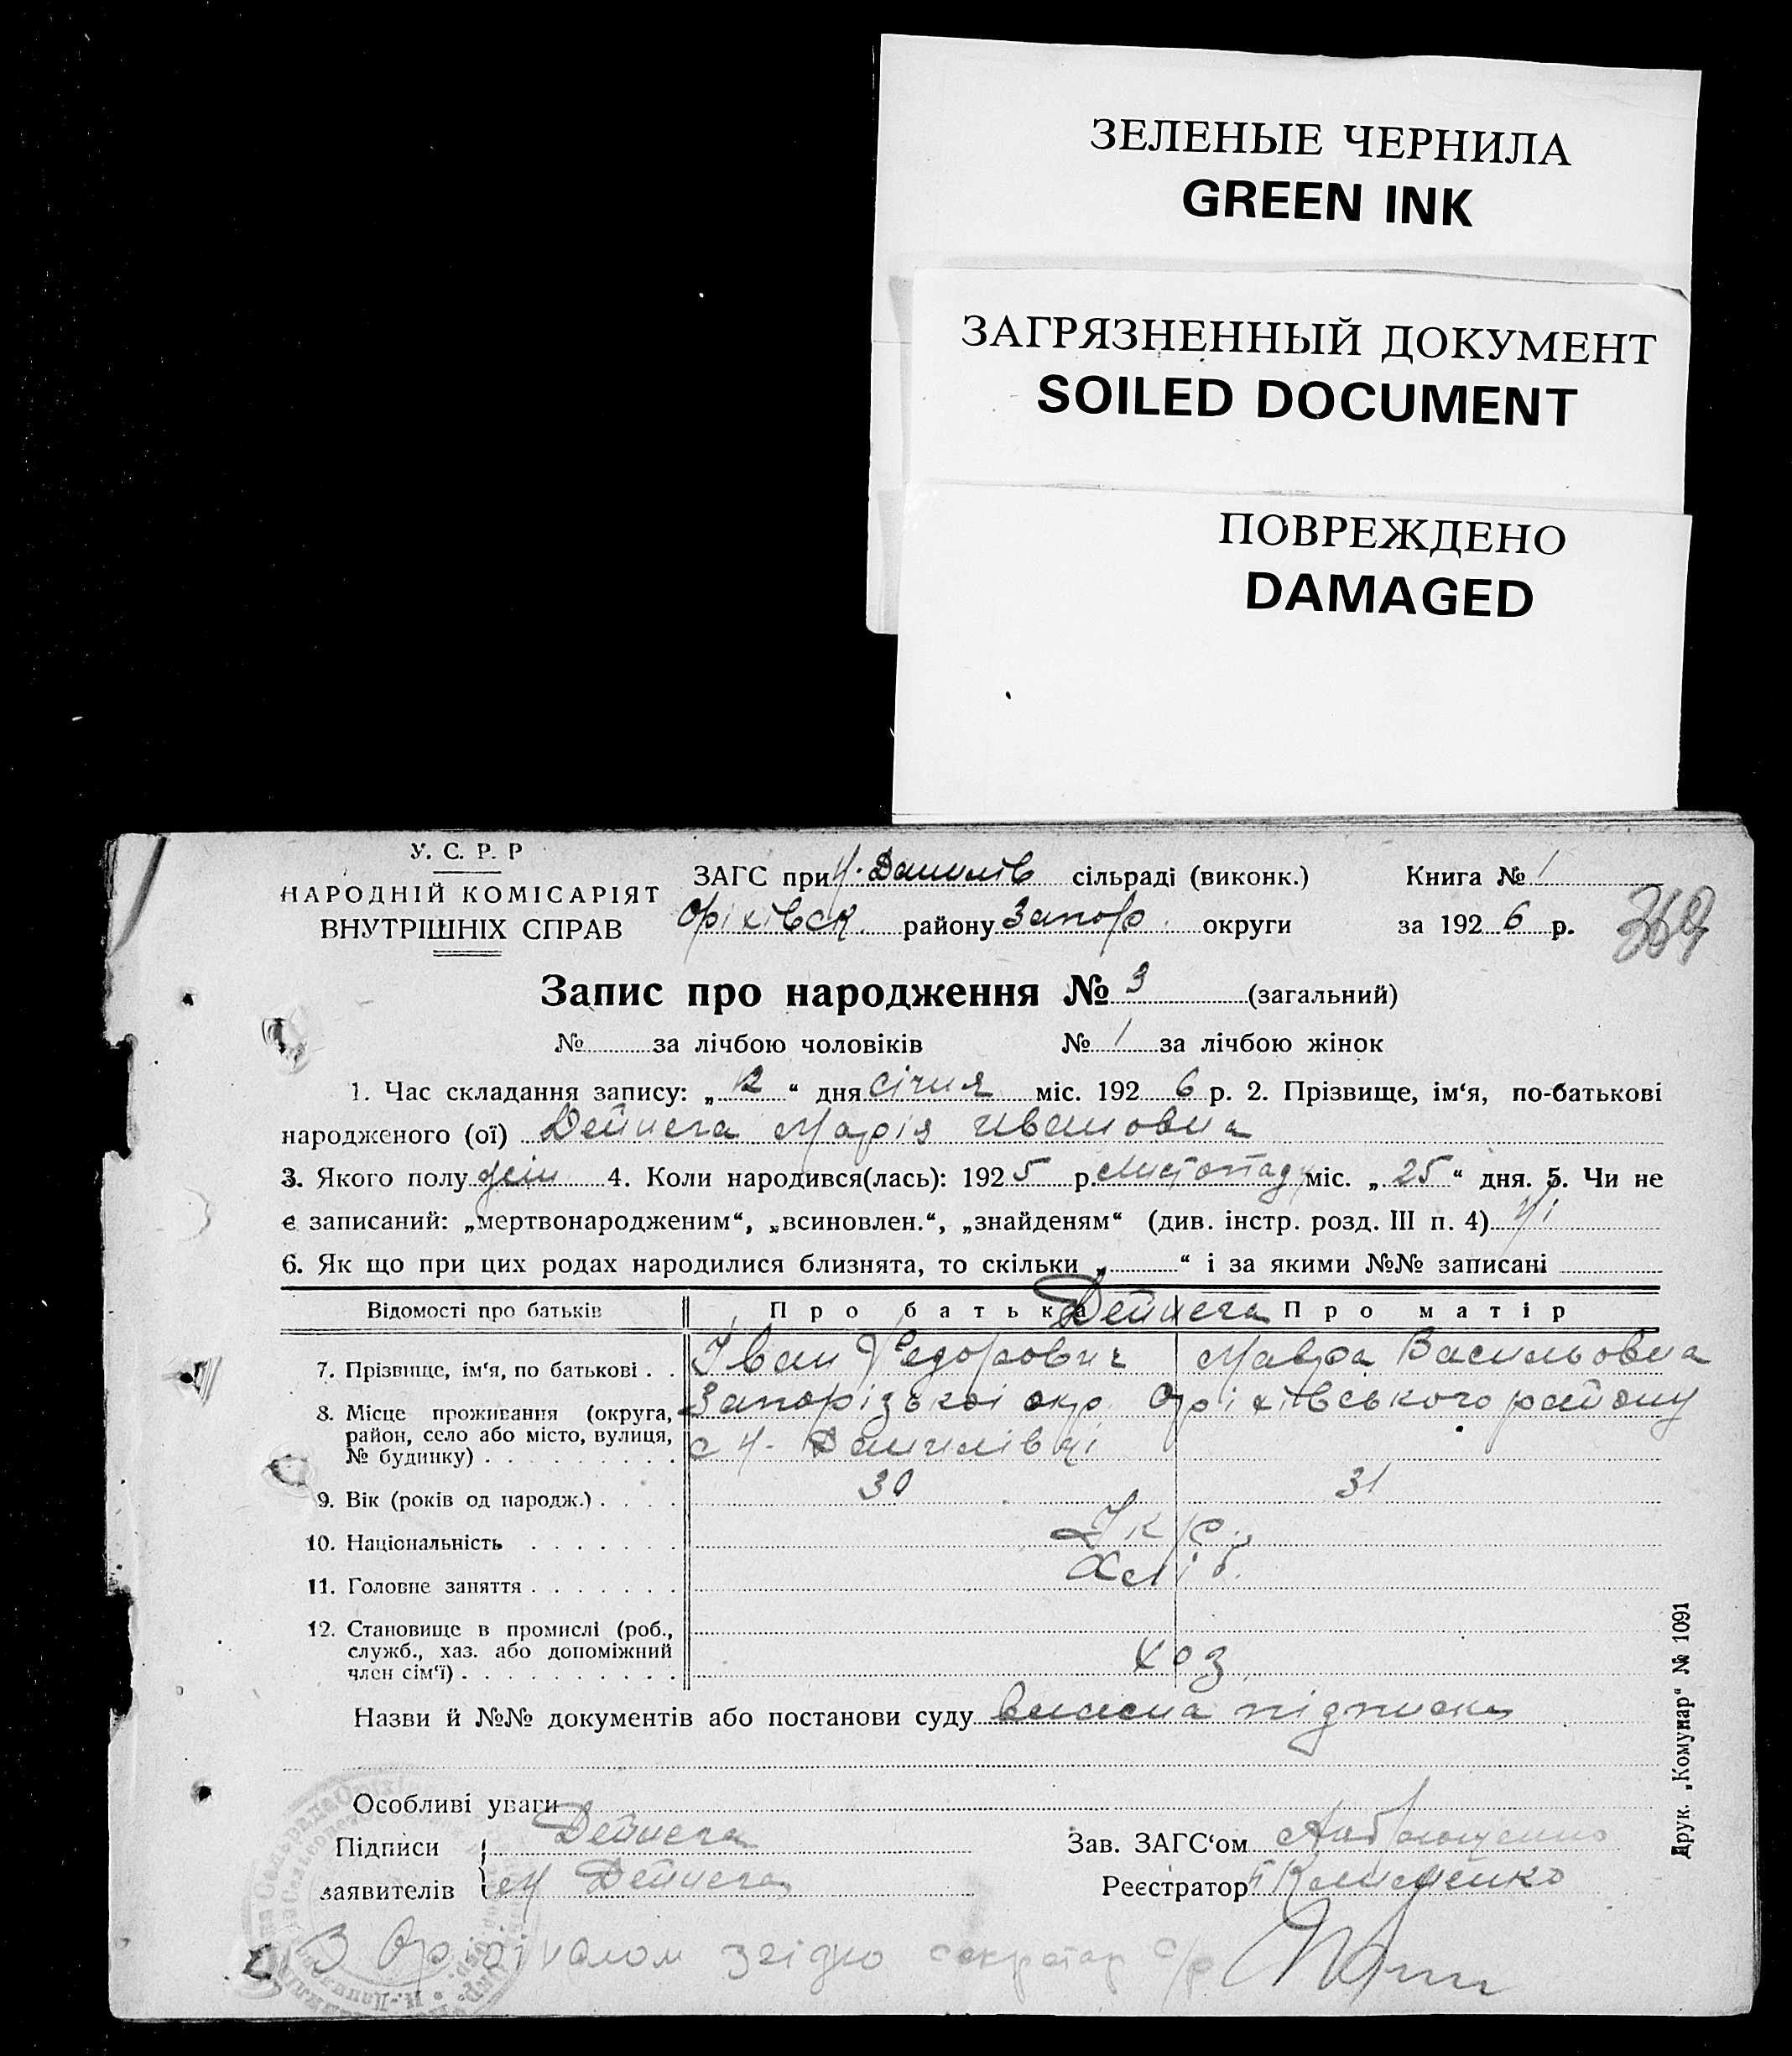 ЗЕЛЕНЫЕ ЧЕРНИЛА
GREEN INK
ЗАГРЯЗНЕННЫЙ ДОКУМЕНТ
SOILED DOCUMENT
ПОВРЕЖДЕНО
DAMAGED
У. С. Р. Р
НАРОДНІЙ КОМІСАРІЯТ
ВНУТРІШНІХ СПРАВ
ЗАГС при Н. Данилів сільраді (виконк.) Книга № 1
Оріхівськ. району Запор. округи за 192 6 р.
369
Запис про народження № 3 (загальний)
№ за лічбою чоловіків № 1 за лічбою жінок
1. Час складання запису: „ 12 “ дня січня міс. 192 6 р. 2. Прізвище, ім‘я, по-батькові
народженого (ої) Дейнега Марія Ивановна
3. Якого полу жін 4. Коли народився(лась): 192 5 р. Листопаду міс. „ 25 “ дня. 5. Чи не
є записаний: „мертвонародженим“, „всиновлен.“, „знайденям“ (див. інстр. розд. III п. 4) Ні
6. Як що при цих родах народилися близнята, то скільки „ “ і за якими №№ записані
Відомості про батьків Про батька Дейнега Про матір
7. Прізвище, ім‘я, по батькові . . Іван Федорович Мавра Васильовна
8. Місце проживання (округа, район, село або місто, вулиця, № будинку) Запорізької окр. Оріхівського району
с Н. Данилівці
9. Вік (років од народж.) . . . . 30 31
10. Національність . . . . . . . Укр.
11. Головне заняття . . . . . . . Хліб.
12. Становище в промислі (роб.,
служб., хаз. або допоміжний
член сім‘ї) . . . . . . . . . . хоз
Назви й №№ документів або постанови суду власна підписка
Особливі уваги
Підписи Дейнега Зав. ЗАГС‘ом
заявителів М Дейнега Реєстратор
З Орігіналом згідно секретар с/р
Друк. „Комунар“ № 1091